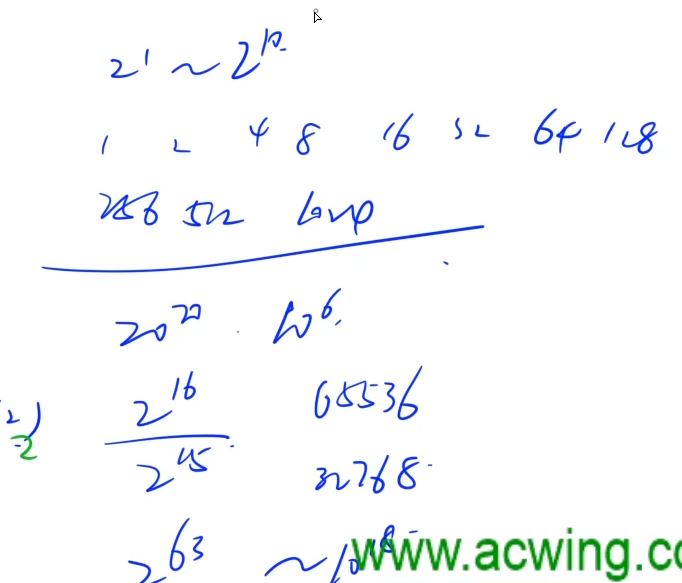 2^1 ~ 2^10
1 2 4 8 16 32 64 128
256 512 1024
20^20 10^6
2^16 65536
2^15 32768
2)
2
2^63 ~10^18
www.acwing.co